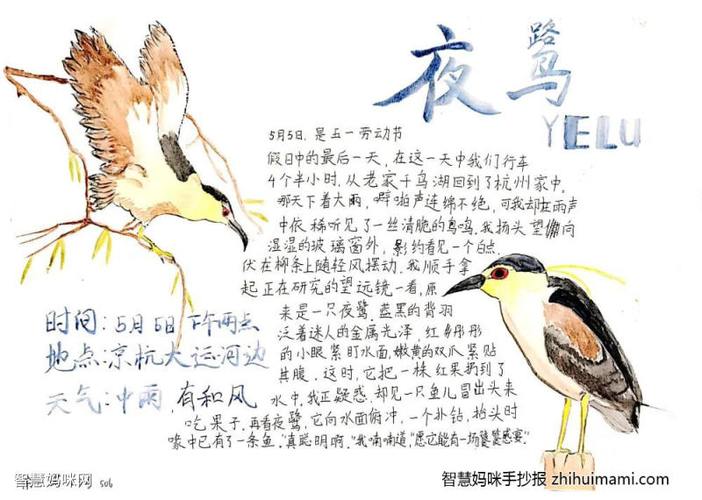 夜鹭
YELU
5月5日,是五一劳动节
假日中的最后一天,在这一天中我们行车
4个半小时,从老家千岛湖回到了杭州家中。
那天下着大雨,噼啪声连绵不绝,可我却在雨声
中依稀听见了一丝清脆的鸟鸣,我扬头望向
湿湿的玻璃窗外,影约看见一个白点,
伏在柳条上随轻风摆动,我顺手拿
起正在研究的望远镜一看,原
来是一只夜鹭,蓝黑的背羽
泛着迷人的金属光泽,红彤彤
的小眼紧盯水面,嫩黄的双爪紧贴
其腹。这时,它把一株红果扔到了
水中,我正疑惑,却见一只鱼儿冒出头来
吃果子,再看夜鹭,它向水面俯冲,一个扑钻,抬头时
喙中已有了一条鱼。"真聪明啊。"我喃喃道,"愿它能有一场
时间:5月5日下午两点
地点:京杭大运河边
天气:中雨,有和风
智慧妈咪网
506
智慧妈咪手抄报 zhihuimami.com